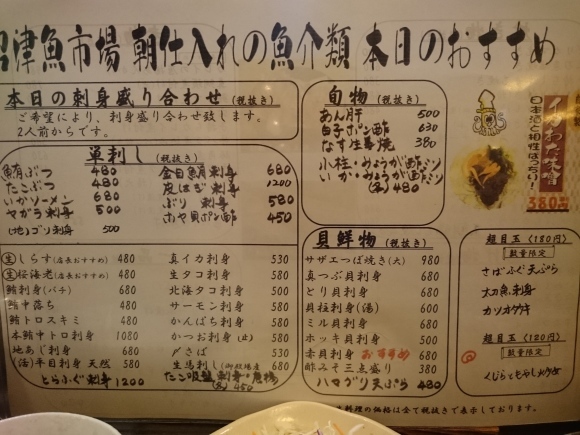 沼津魚市場 朝仕入れの魚介類 本日のおすすめ
本日の刺身盛り合わせ (税抜き)
ご希望により、刺身盛り合わせ致します。
2人前からです。
単刺し (税抜き)
鮪ぶつ 480
たこぶつ 480
いかソーメン 680
ヤガラ刺身 500
(地)ゴリ刺身 500
金目鯛刺身 680
皮はぎ刺身 1200
ぶり刺身 580
ホヤ貝ポン酢 450
(生)しらす(店長おすすめ) 480
(生)桜海老(店長おすすめ) 480
鮪刺身(バチ) 680
鮪中落ち 580
鮪トロスキミ 480
本鮪中トロ刺身 1080
地あじ刺身 680
(活)平目刺身 天然 580
とらふぐ刺身 1200
真イカ刺身 530
生タコ刺身 580
北海タコ刺身 500
サーモン刺身 580
かんぱち刺身 580
かつお刺身 580
〆さば 530
生馬刺し(御殿場産)
たこ吸盤刺身・唐揚
(各)450
旬物 (税抜き)
あん肝 500
白子ポン酢 630
なす生姜焼 380
小柱・みょうが酢ミソ
いか・みょうが酢ミソ
(各)480
イカわた味噌
日本酒と相性ばっちり!
380
貝鮮物 (税抜き)
サザエつぼ焼き(大) 980
真つぶ貝刺身 680
とり貝刺身 680
貝柱刺身(湯) 600
ミル貝刺身 680
ホッキ貝刺身 680
赤貝刺身 おすすめ 680
酢みそ三点盛り 680
ハマグリ天ぷら 480
超目玉 (180円)
数量限定
さばふぐ天ぷら
太刀魚刺身
カツオタタキ
超目玉 (120円)
(数量限定)
お料理の価格は全て税抜きで表示しております。